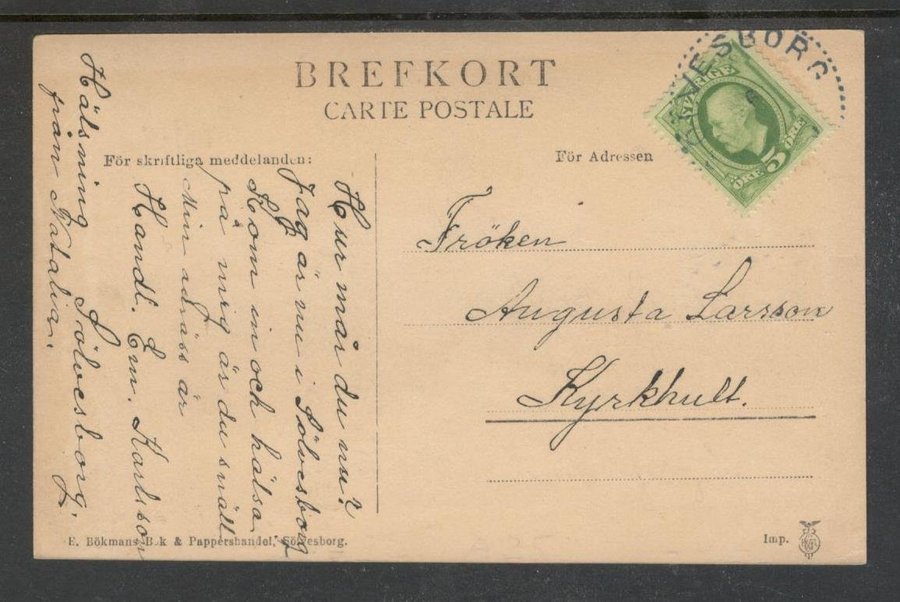 BREFKORT
CARTE POSTALE
För skriftliga meddelanden:
För Adressen
SVERIGE
5
ÖRE
ÖRE
Hur mår du nu?
Jag är nu i Sölvesborg
Kom in och hälsa
på mig är du snäll
Min adräss är
Handl. Em. Karlsson
Sölvesborg.
Hälsning
från Natalia.
Fröken
Augusta Larsson
Kyrkhult.
E. Bökmans Bok & Pappershandel, Sölvesborg.
Imp.